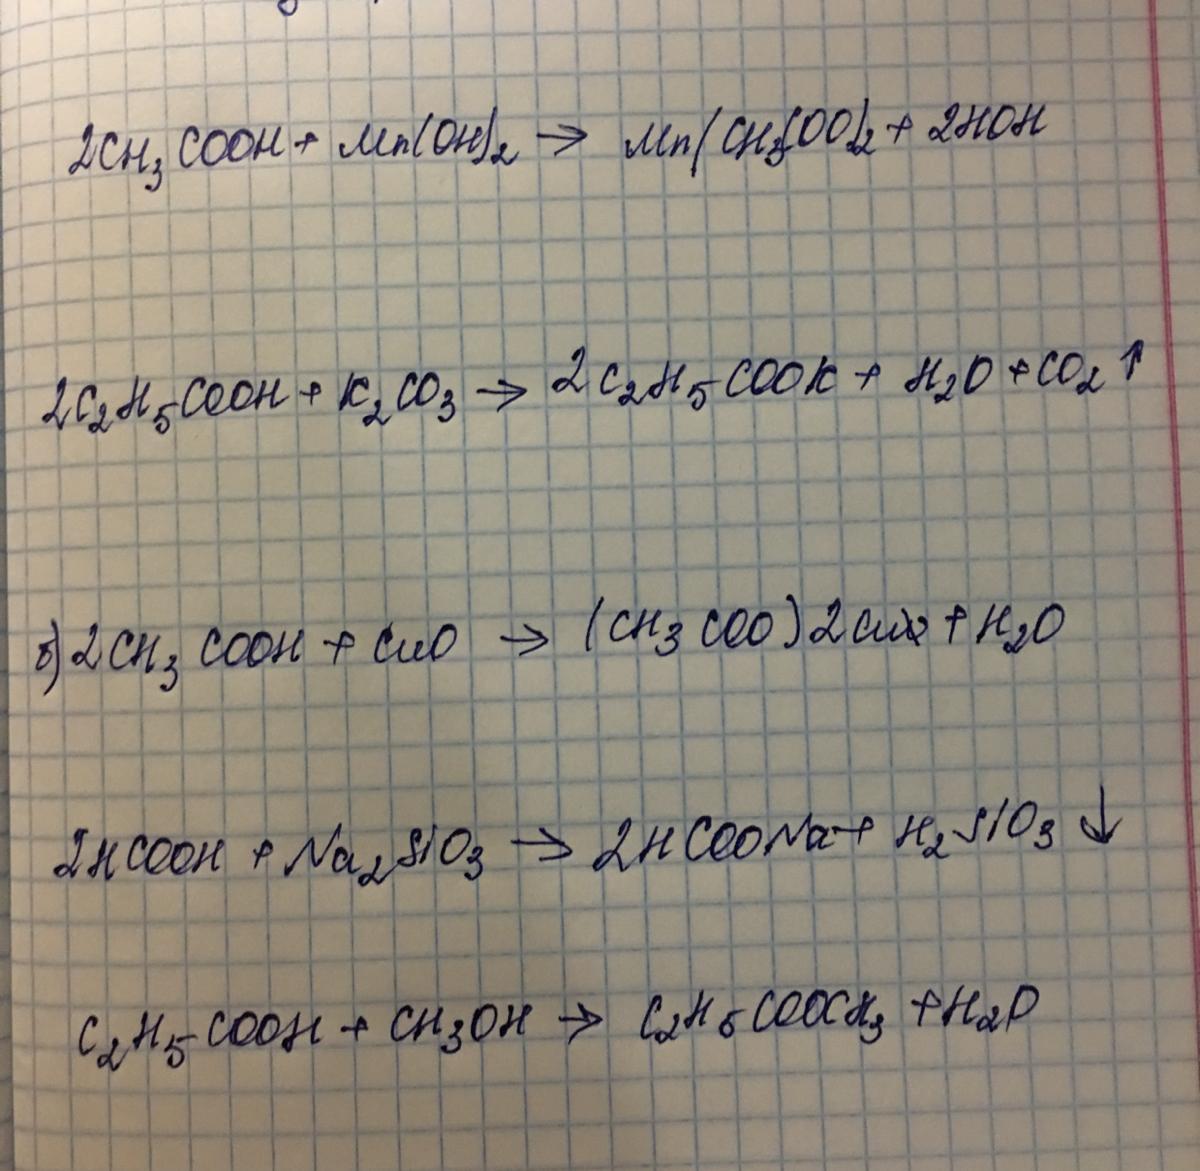 2CH₃COOH + Mn(OH)₂ → Mn(CH₃COO)₂ + 2HOH
2C₂H₅COOH + K₂CO₃ → 2C₂H₅COOK + H₂O + CO₂↑
б) 2CH₃COOH + CuO → (CH₃COO)2Cu + H₂O
2HCOOH + Na₂SiO₃ → 2HCOONa + H₂SiO₃↓
C₂H₅COOH + CH₃OH → C₂H₅COOCH₃ + H₂O